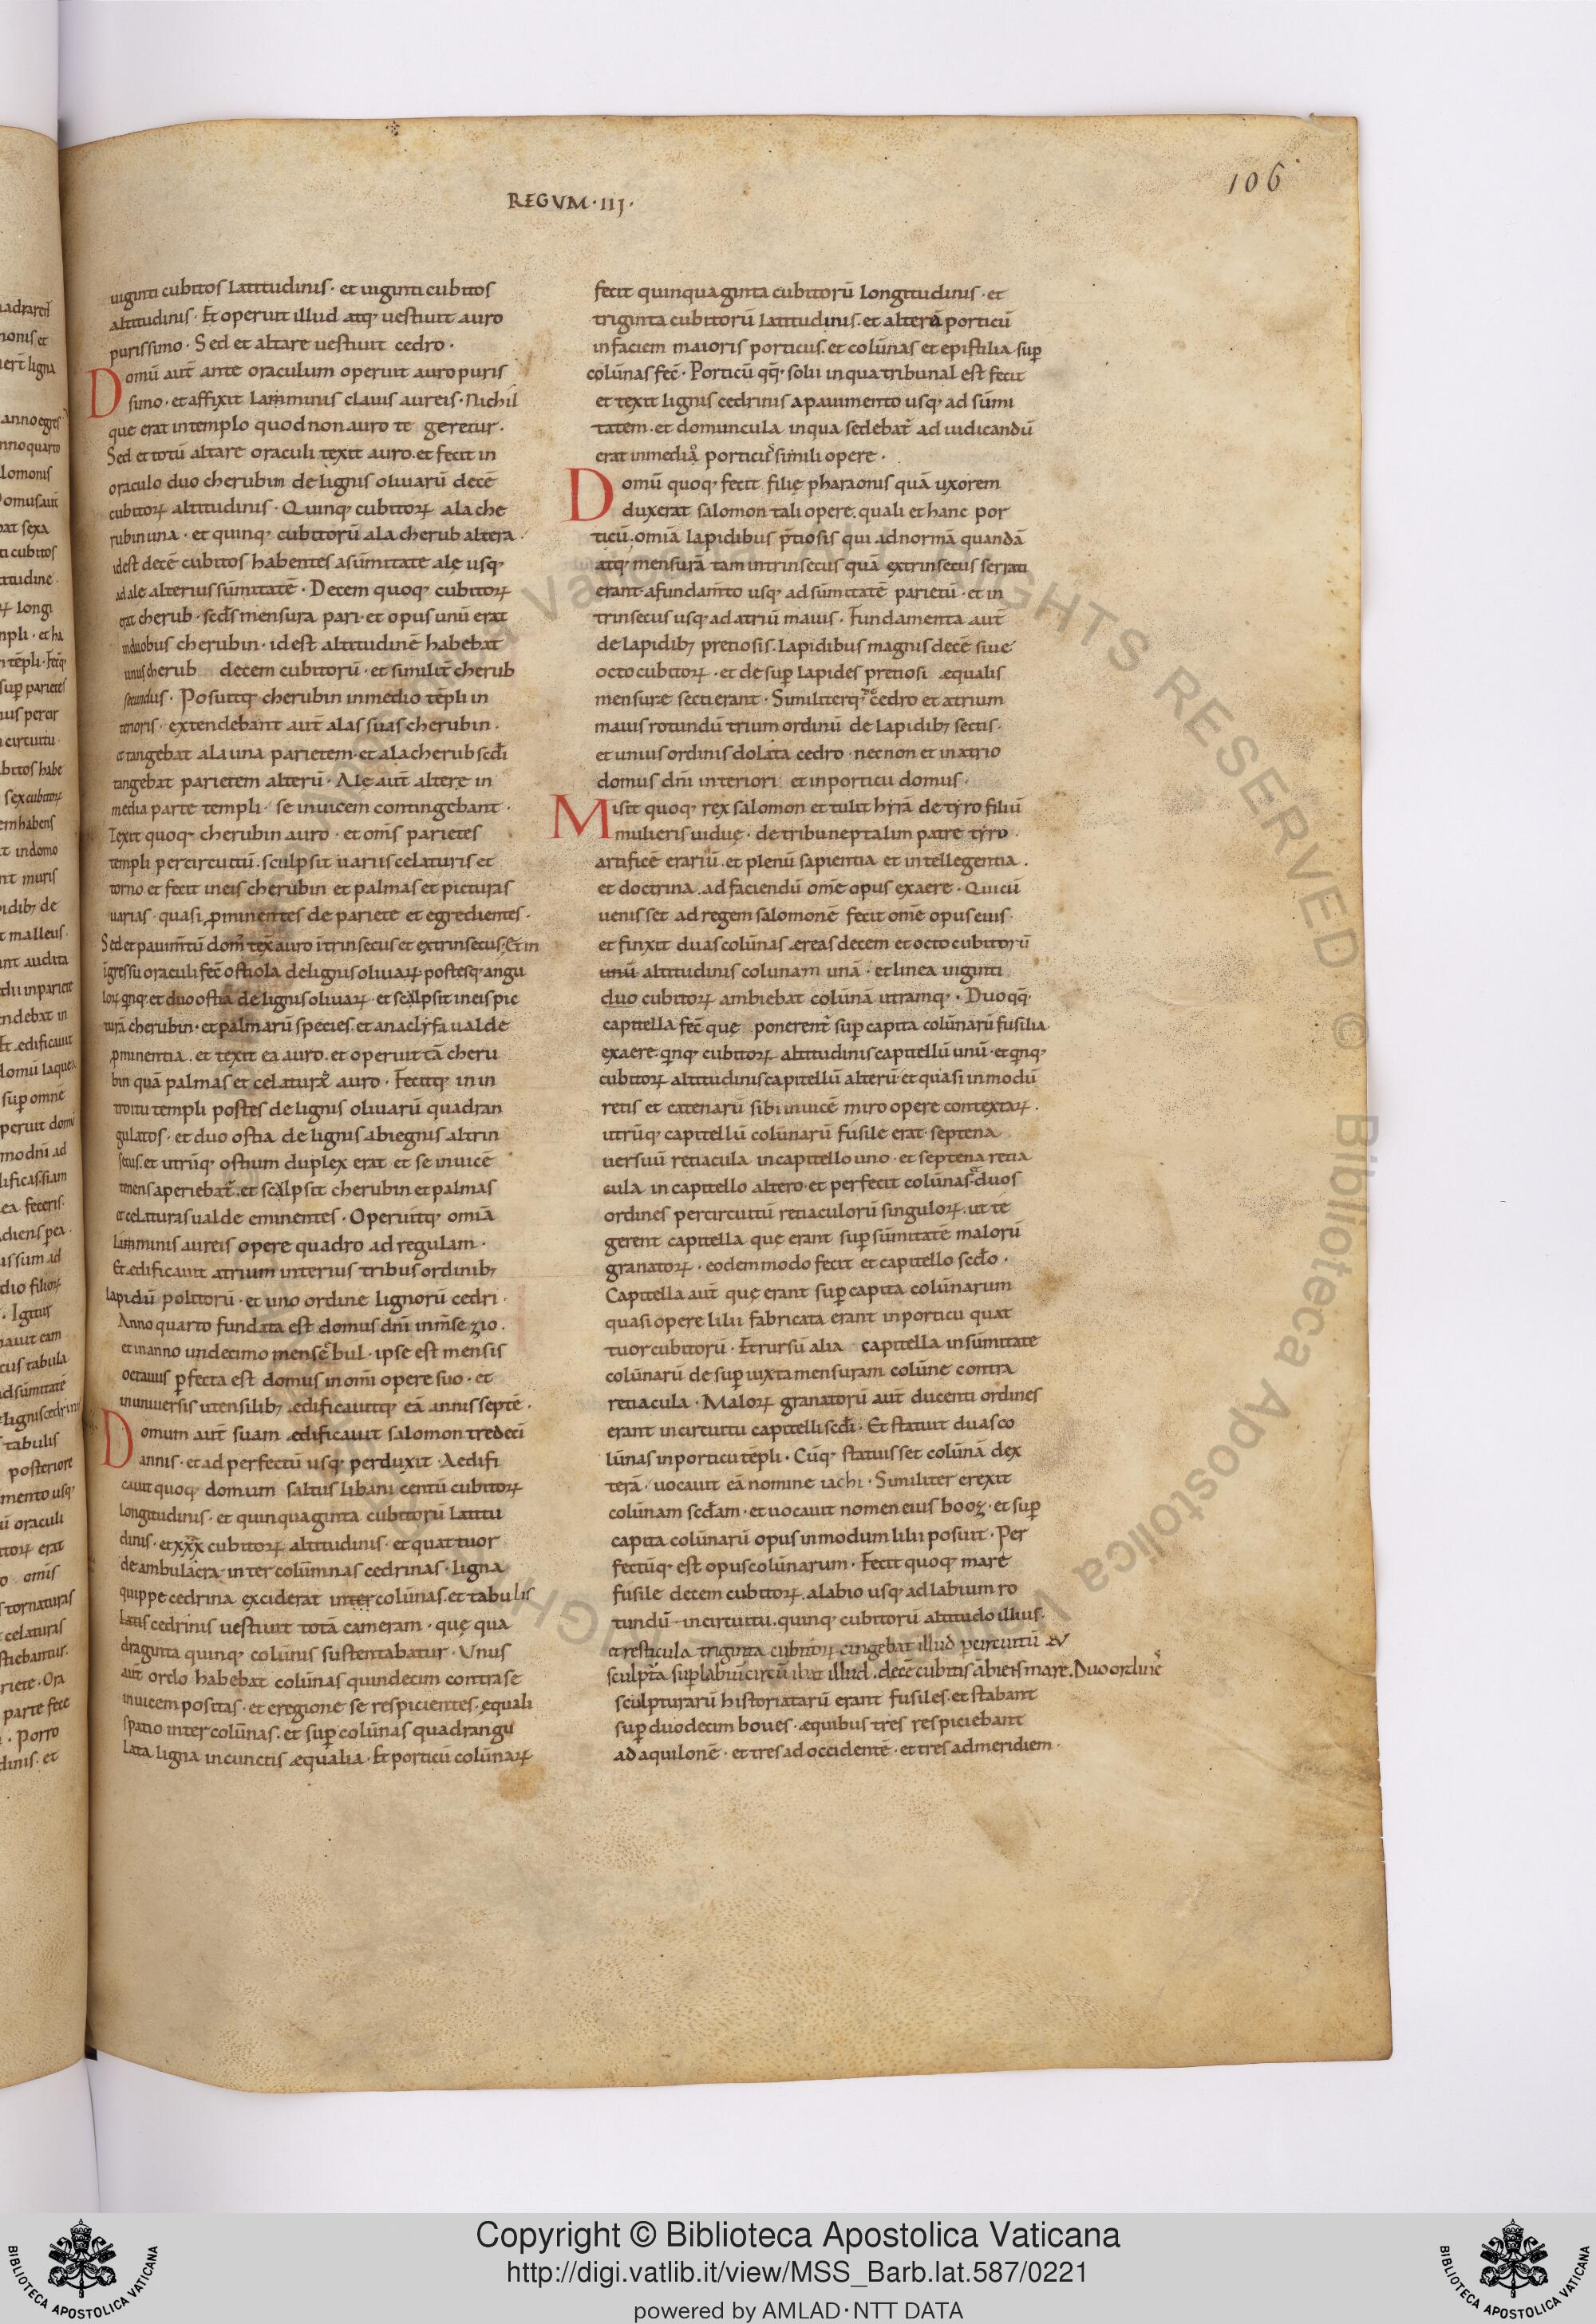 106
REGVM·IIJ·
uiginti cubitos Latitudinis· et uiginti cubitos
altitudinis· Et operuit illud atq; uestiuit auro
purissimo· Sed et altare uestiuit cedro·
Domū aut̄ ante oraculum operuit auro puris
simo· et affixit Lamminis clauis aureis· Nichil
que erat in templo quod non auro te geretur·
Sed et totū altare oraculi texit auro. et fecit in
oraculo duo cherubin de lignis oliuarū decē
cubitoꝝ altitudinis· Quinq; cubitoꝝ ala che
rubin una· et quinq; cubitorū ala cherub altera·
id est decē cubitos habentes a sūmitate alę usq;
ad ale alterius sūmitatē· Decem quoq; cubitoꝝ
erat cherub· scd̄s mensura pari· et opus unū erat
in duobus cherubin· id est altitudinē habebat
unus cherub decem cubitorū· et similit̄ cherub
secundus· Posuitq; cherubin in medio tēpli in
terioris· extendebant aut̄ alas suas cherubin·
et tangebat ala una parietem· et ala cherub scd̄i
tangebat parietem alterū· Alę aut̄ alterę in
media parte templi· se inuicem contingebant·
Texit quoq; cherubin auro· et om̄s parietes
templi per circuitū. sculpsit uariis celaturis et
torno et fecit in eis cherubin et palmas et picturas
uarias· quasi ꝓminentes de pariete et egredientes·
Sed et pauim̄tū dom̄ tex̄ auro ītrinsecus et extrinsecus. Et in
īgressu oraculi fec̄ ostiola de lignis oliuaꝝ postesq; angu
loꝝ qnq; et duo ostia de lignis oliuaꝝ· et scalpsit in eis pic
turā cherubin· et palmarū species. et anaclyfa ualde
ꝓminentia. et texit ea auro. et operuit tā cheru
bin quā palmas et celatura auro· Fecitq; in in
troitu templi postes de lignis oliuarū quadran
gulatos· et duo ostia de lignis abiegnis altrin
secus. et utrūq; ostium duplex erat et se inuicē
tenens aperiebat̄. et scalpsit cherubin et palmas
et celaturas ualde eminentes· Operuitq; om̄ia
Laminnis aureis opere quadro ad regulam·
Et ædificauit atrium interius tribus ordinib;
lapidū politorū· et uno ordine lignorū cedri·
Anno quarto fundata est domus dn̄i in m̄se zio·
et in anno undecimo mense bul· ipse est mensis
octauus ꝑfecta est domus in om̄i opere suo· et
in uniuersis utensilib; ædificauitq; eā annis septē·
Domum aut̄ suam ædificauit salomon tredeci
annis· et ad perfectū usq; perduxit· Aedifi
cauit quoq; domum saltus libani centū cubitoꝝ
longitudinis· et quinquaginta cubitorū latitu
dinis· et xxx cubitoꝝ altitudinis· et quattuor
deambulacra inter colūmnas cedrinas· ligna
quippe cedrina exciderat inter colūnas. et tabulis
latis cedrinis uestiuit totā cameram· quę qua
draginta quinq; colūnis sustentabatur· Vnus
aut̄ ordo habebat colūnas quindecim contra se
inuicem positas· et eregione se respicientes. equali
spatio inter colūnas. et suꝑ colūnas quadrangu
lata ligna in cunctis æqualia· Et porticū colūnaꝝ
fecit quinquaginta cubitorū longitudinis· et
triginta cubitorū latitudinis. et alterū porticū
in faciem maioris porticus. et colūnas et epistilia suꝑ
colūnas fec̄· Porticū qq̄· solii in qua tribunal est fecit
et texit lignis cedrinis a pauimento usq; ad sūmi
tatem. et domuncula in qua sedebat̄ ad iudicandū
erat in media porticu simili opere·
Domū quoq; fecit filię pharaonis quā uxorem
duxerat salomon tali opere. quali et hanc por
ticū. om̄ia lapidibus p̄tiosis qui ad normā quandā
atq; mensurā tam intrinsecus quā extrinsecus serrati
erant· a fundam̄to usq; ad sūmitatē parietū· et in
trinsecus usq; ad atriū maius· Fundamenta aut̄
de lapidib; pretiosis. Lapidibus magnis decē siue
octo cubitoꝝ· et de suꝑ lapides pretiosi æqualis
mensure secti erant· Similiterq; de cedro et atrium
maius rotundū trium ordinū de lapidib; sectis·
et unius ordinis dolata cedro· necnon et in atrio
domus dn̄i interiori et in porticu domus·
Misit quoq; rex salomon et tulit hyrā de tyro filiū
mulieris uiduę· de tribu neptalim patre tyro·
artificē erariū. et plenū sapientia et intellegentia·
et doctrina. ad faciendū om̄e opus ex aere· Qui cū
uenisset ad regem salomonē fecit om̄e opus eius·
et finxit duas colūnas æreas decem et octo cubitorū
unū altitudinis colunam unā· et linea uiginti
duo cubitoꝝ ambiebat colūnā utramq;· Duo qq̄·
capitella fec̄ que ponerent̄ suꝑ capita colūnarū fusilia
ex aere. qnq; cubitoꝝ altitudinis capitellū unū· et qnq;
cubitoꝝ altitudinis capitellū alterū· et quasi in modū
retis et catenarū sibi inuicē miro opere contextaꝝ·
utrūq; capitellū colūnarū fusile erat· septena
uersuū retiacula in capitello uno· et septena retia
cula in capitello altero· et perfecit colūnas· duos
ordines per circuitū retiaculorū singuloꝝ. ut te
gerent capitella quę erant suꝑ sūmitatē malorū
granatoꝝ· eodem modo fecit et capitello scd̄o·
Capitella aut̄ quę erant suꝑ capita colūnarum
quasi opere lilii fabricata erant in porticu quat
tuor cubitorū· Et rursū alia capitella in sūmitate
colūnarū de suꝑ iuxta mensuram colūne contra
retiacula· Maloꝝ granatorū aut̄ ducenti ordines
erant in circuitu capitelli scd̄i· Et statuit duas co
lūnas in porticu tēpli· Cūq; statuisset colūnā dex
terā· uocauit eā nomine iachi· Similiter erexit
colūnam scd̄am· et uocauit nomen eius booz· et suꝑ
capita colūnarū opus in modum lilii posuit· Per
fectūq; est opus colūnarum· Fecit quoq; mare
fusile decem cubitoꝝ. a labio usq; ad labium ro
tundū in circuitu. quinq; cubitorū altitudo illius·
et resticula triginta cubitoꝝ cingebat illud ꝑ circuitū Et
sculpt̄a suꝑ labiū circū ibat illud. decē cubitis ābiens mare. Duo ordines
sculpturarū historiatarū erant fusiles. et stabant
suꝑ duodecim boues· æquibus tres respiciebant
ad aquilonē· et tres ad occidentē· et tres ad meridiem·
Copyright © Biblioteca Apostolica Vaticana
http://digi.vatlib.it/view/MSS_Barb.lat.587/0221
powered by AMLAD·NTT DATA
BIBLIOTECA APOSTOLICA VATICANA
BIBLIOTECA APOSTOLICA VATICANA